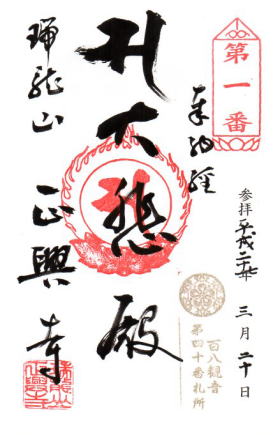 第一番
奉納経
参拝平成二十七年三月二十日
百八観音
第四十番札所
大悲殿
瑞龍山
正興寺